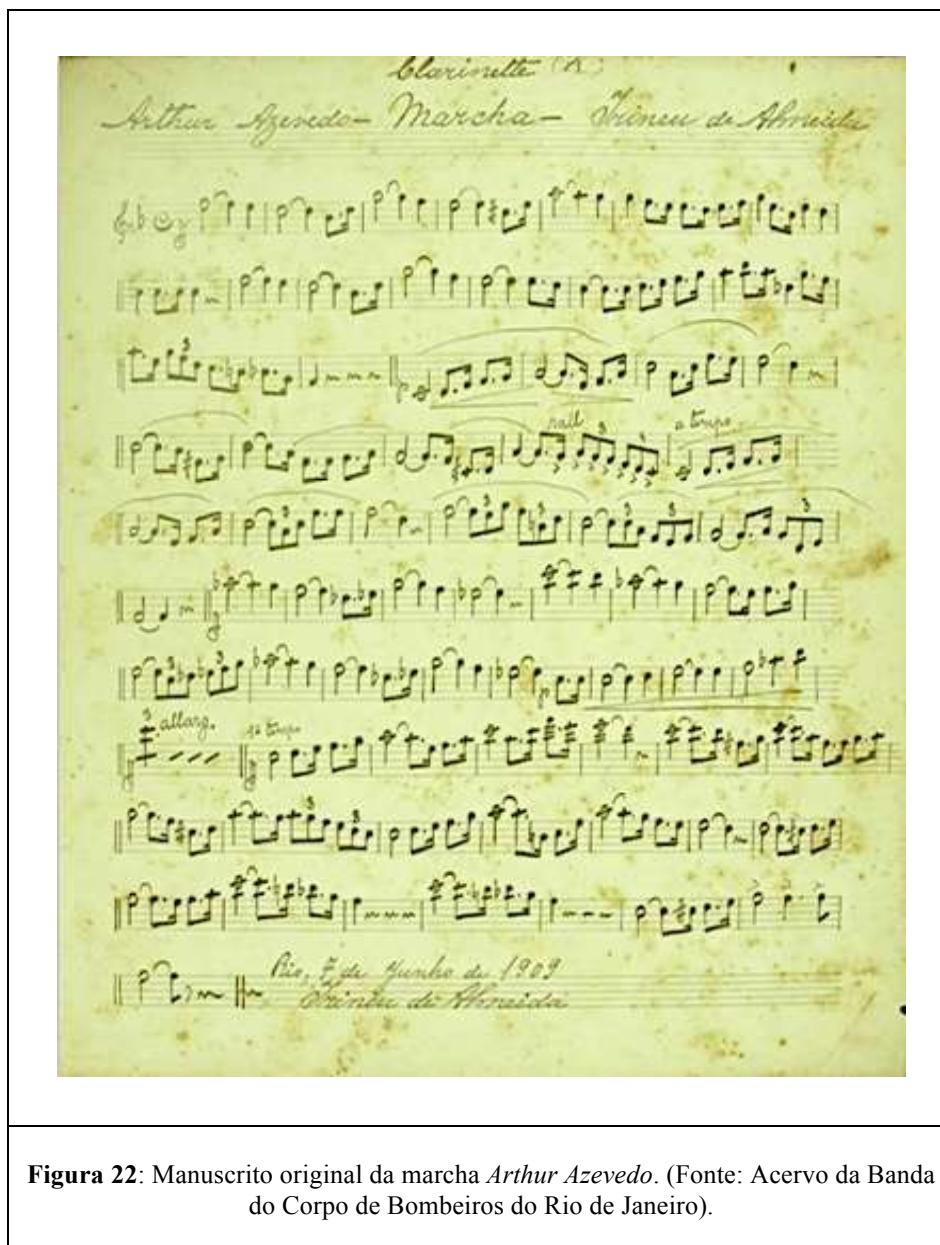 Clarinette (A)
Arthur Azevedo - Marcha - Irineu de Almeida
3
rall 3 3 a tempo
3 3 3 3 3 3
3 3
3 allarg. 1º tempo
3 3
Rio, 7 de Junho de 1909
Irineu de Almeida
Figura 22: Manuscrito original da marcha Arthur Azevedo. (Fonte: Acervo da Banda
do Corpo de Bombeiros do Rio de Janeiro).